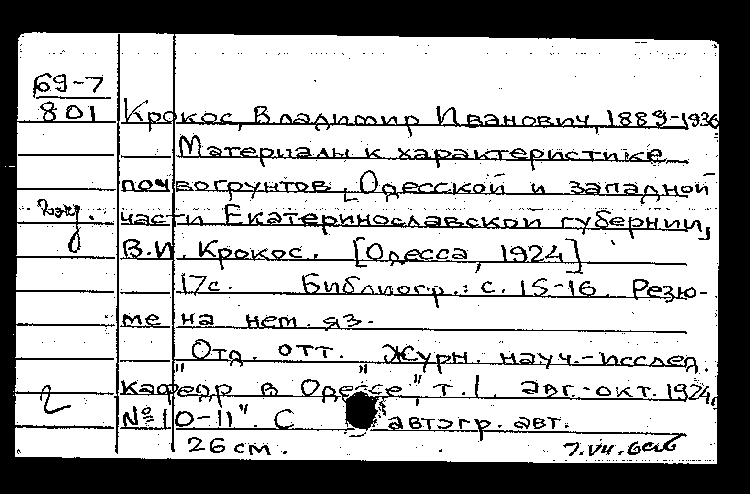 69-7
801
Крокос, Владимир Иванович, 1889-1936
Материалы к характеристике
почвогрунтов [Одесской и западной
части Екатеринославской губернии,
В.И. Крокос. [Одесса, 1924]
17с. Библиогр.: с. 15-16. Резю-
ме на нем. яз.
"Отд. отт. "Журн. науч.-исслед.
кафедр в Одессе", т.1. авг.-окт. 1924,
№10-11". С автогр. авт.
2
26 см.